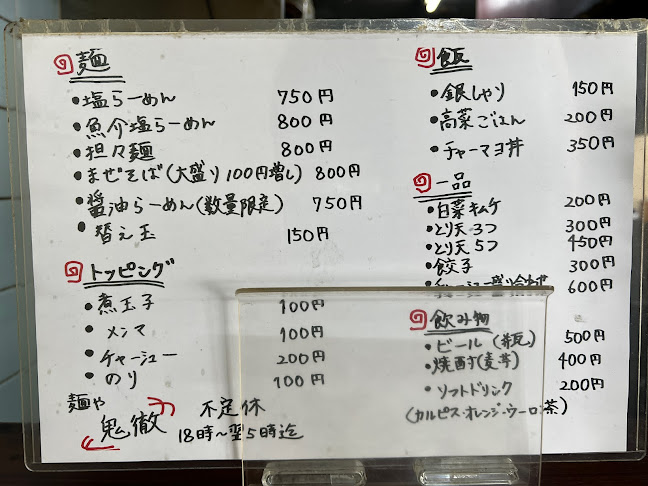 麺
・塩らーめん 750円
・魚介塩らーめん 800円
・担々麺 800円
・まぜそば(大盛り100円増し) 800円
・醤油らーめん(数量限定) 750円
・替え玉 150円
トッピング
・煮玉子 100円
・メンマ 100円
・チャーシュー 200円
・のり 100円
麺や
鬼徹
不定休
18時〜翌5時迄
飯
・銀しゃり 150円
・高菜ごはん 200円
・チャーマヨ丼 350円
一品
・白菜キムケ 200円
・とり天3つ 300円
・とり天5つ 450円
・餃子 300円
・チャーシュー盛り合わせ 600円
飲み物
・ビール(瓶) 500円
・焼酎(麦芋) 400円
・ソフトドリンク 200円
(カルピス・オレンジ・ウーロン茶)